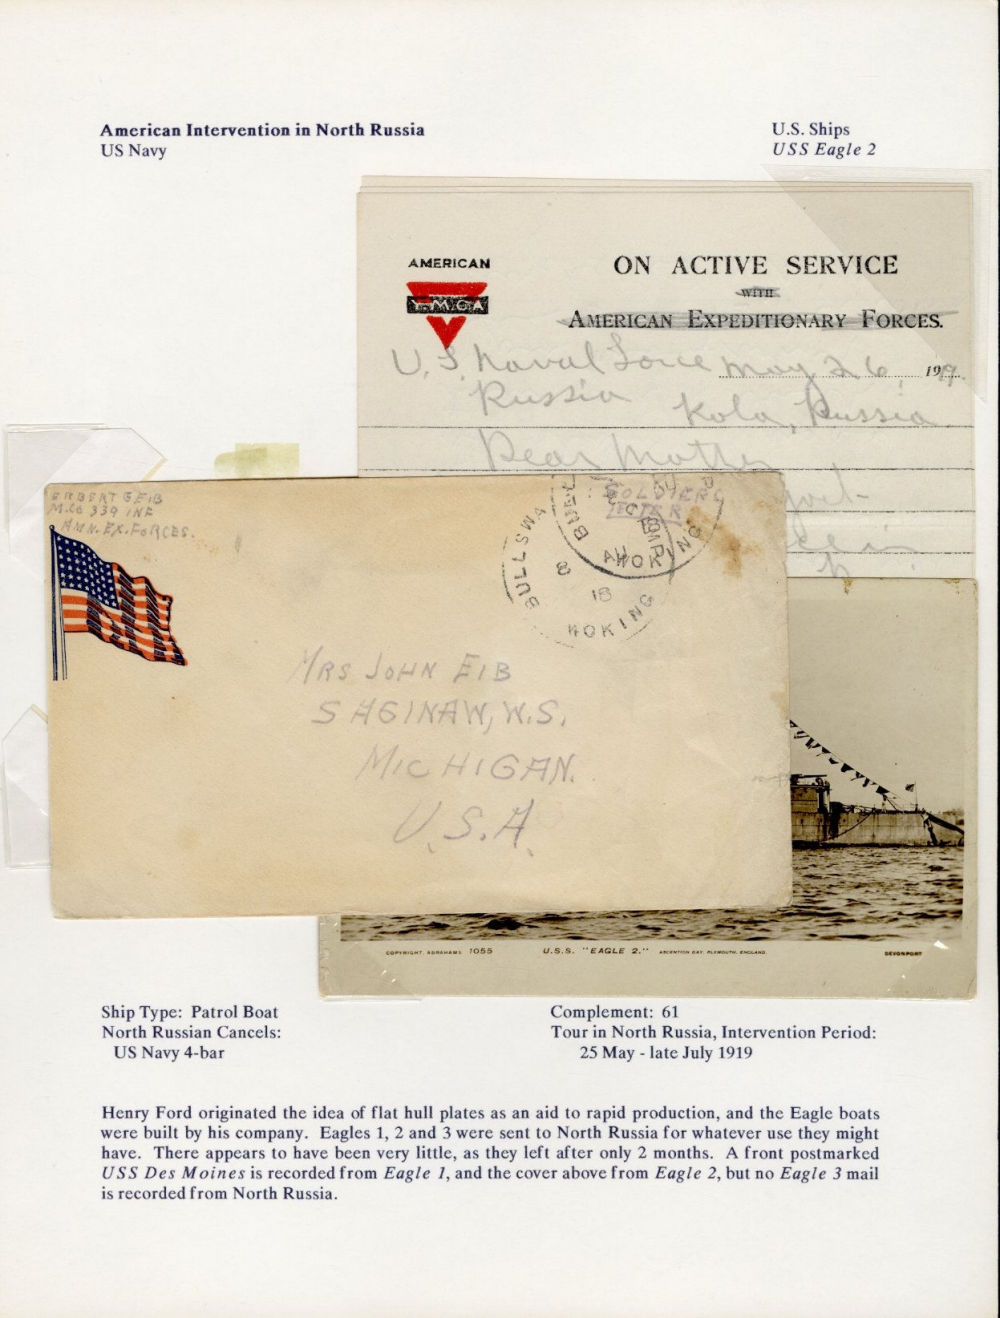 American Intervention in North Russia
US Navy
U.S. Ships
USS Eagle 2
AMERICAN
Y.M.C.A
ON ACTIVE SERVICE
WITH
AMERICAN EXPEDITIONARY FORCES.
U.S. Naval Force May 26, 1919.
Russia
Kola, Russia
Dear Mother
HERBERT G EIB
M. Co 339 INF
AMN. EX. FORCES.
SOLDIERS
LETTER
BULLSWA
WOKING
8
18
MRS JOHN EIB
SAGINAW, W.S.
MICHIGAN.
U.S.A.
COPYRIGHT. ABRAHAMS. 1055
U.S.S. "EAGLE 2."
ASCENTION DAY. PLYMOUTH. ENGLAND.
DEVONPORT
Ship Type: Patrol Boat
North Russian Cancels:
US Navy 4-bar
Complement: 61
Tour in North Russia, Intervention Period:
25 May - late July 1919
Henry Ford originated the idea of flat hull plates as an aid to rapid production, and the Eagle boats
were built by his company. Eagles 1, 2 and 3 were sent to North Russia for whatever use they might
have. There appears to have been very little, as they left after only 2 months. A front postmarked
USS Des Moines is recorded from Eagle 1, and the cover above from Eagle 2, but no Eagle 3 mail
is recorded from North Russia.